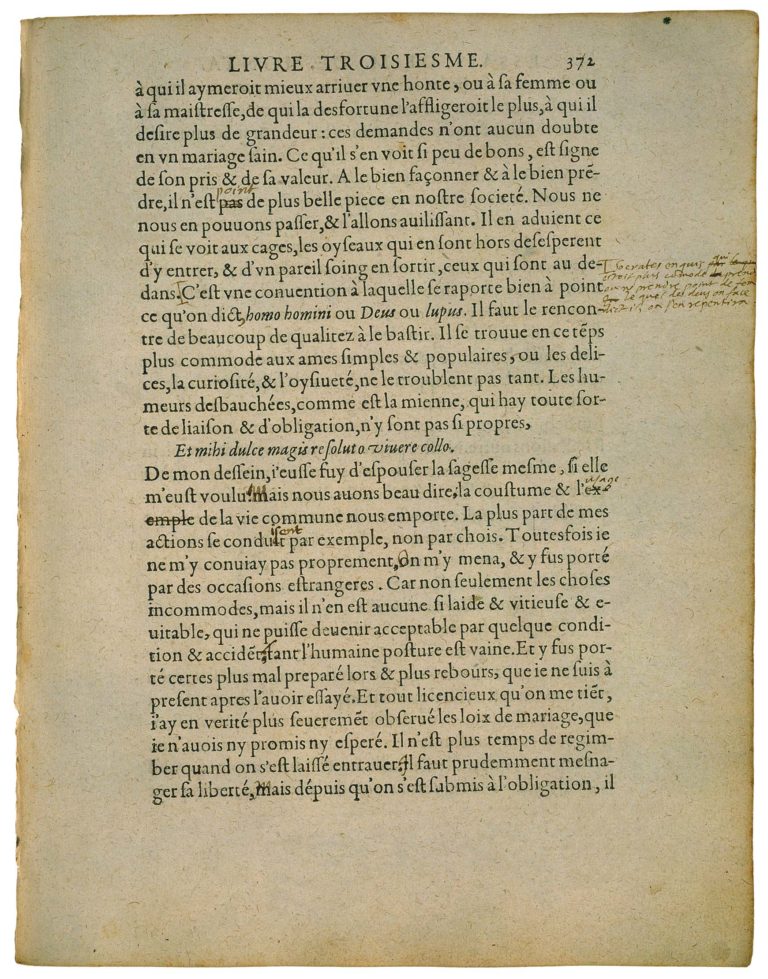 LIVRE TROISIESME. 372
à qui il aymeroit mieux arriuer vne honte, ou à sa femme ou
à sa maistresse, de qui la desfortune l'affligeroit le plus, à qui il
desire plus de grandeur : ces demandes n'ont aucun doubte
en vn mariage sain. Ce qu'il s'en voit si peu de bons, est signe
de son pris & de sa valeur. A le bien façonner & à le bien prẽ-
point
dre, il n'est pas de plus belle piece en nostre societé. Nous ne
nous en pouuons passer, & l'allons auilissant. Il en aduient ce
qui se voit aux cages, les oyseaux qui en sont hors desesperent
d'y entrer, & d'vn pareil soing en sortir, ceux qui sont au de-
dans. C'est vne conuention à laquelle se raporte bien à point
ce qu'on dict, homo homini ou Deus ou lupus. Il faut le rencon-
tre de beaucoup de qualitez à le bastir. Il se trouue en ce tẽps
plus commode aux ames simples & populaires, ou les deli-
ces, la curiosité, & l'oysiueté, ne le troublent pas tant. Les hu-
meurs desbauchées, comme est la mienne, qui hay toute sor-
te de liaison & d'obligation, n'y sont pas si propres,
Et mihi dulce magis resoluto viuere collo.
De mon dessein, i'eusse fuy d'espouser la sagesse mesme, si elle
usage
m'eust voulu. Mais nous auons beau dire, la coustume & l'ex-
emple de la vie commune nous emporte. La plus part de mes
isent
actions se conduit par exemple, non par chois. Toutesfois ie
ne m'y conuiay pas proprement, On m'y mena, & y fus porté
par des occasions estrangeres. Car non seulement les choses
incommodes, mais il n'en est aucune si laide & vitieuse & e-
uitable, qui ne puisse deuenir acceptable par quelque condi-
tion & accidẽt, tant l'humaine posture est vaine. Et y fus por-
té certes plus mal preparé lors & plus rebours, que ie ne suis à
present apres l'auoir essayé. Et tout licencieux qu'on me tiẽt,
i'ay en verité plus seueremẽt obserué les loix de mariage, que
ie n'auois ny promis ny esperé. Il n'est plus temps de regim-
ber quand on s'est laissé entrauer, Il faut prudemment mesna-
ger sa liberté, Mais dépuis qu'on s'est submis à l'obligation, il
Socrates enquis qui
estoit plus commode prendre
ou ne prendre point de fame
le quel des deus on face
dict il on s'en repentira